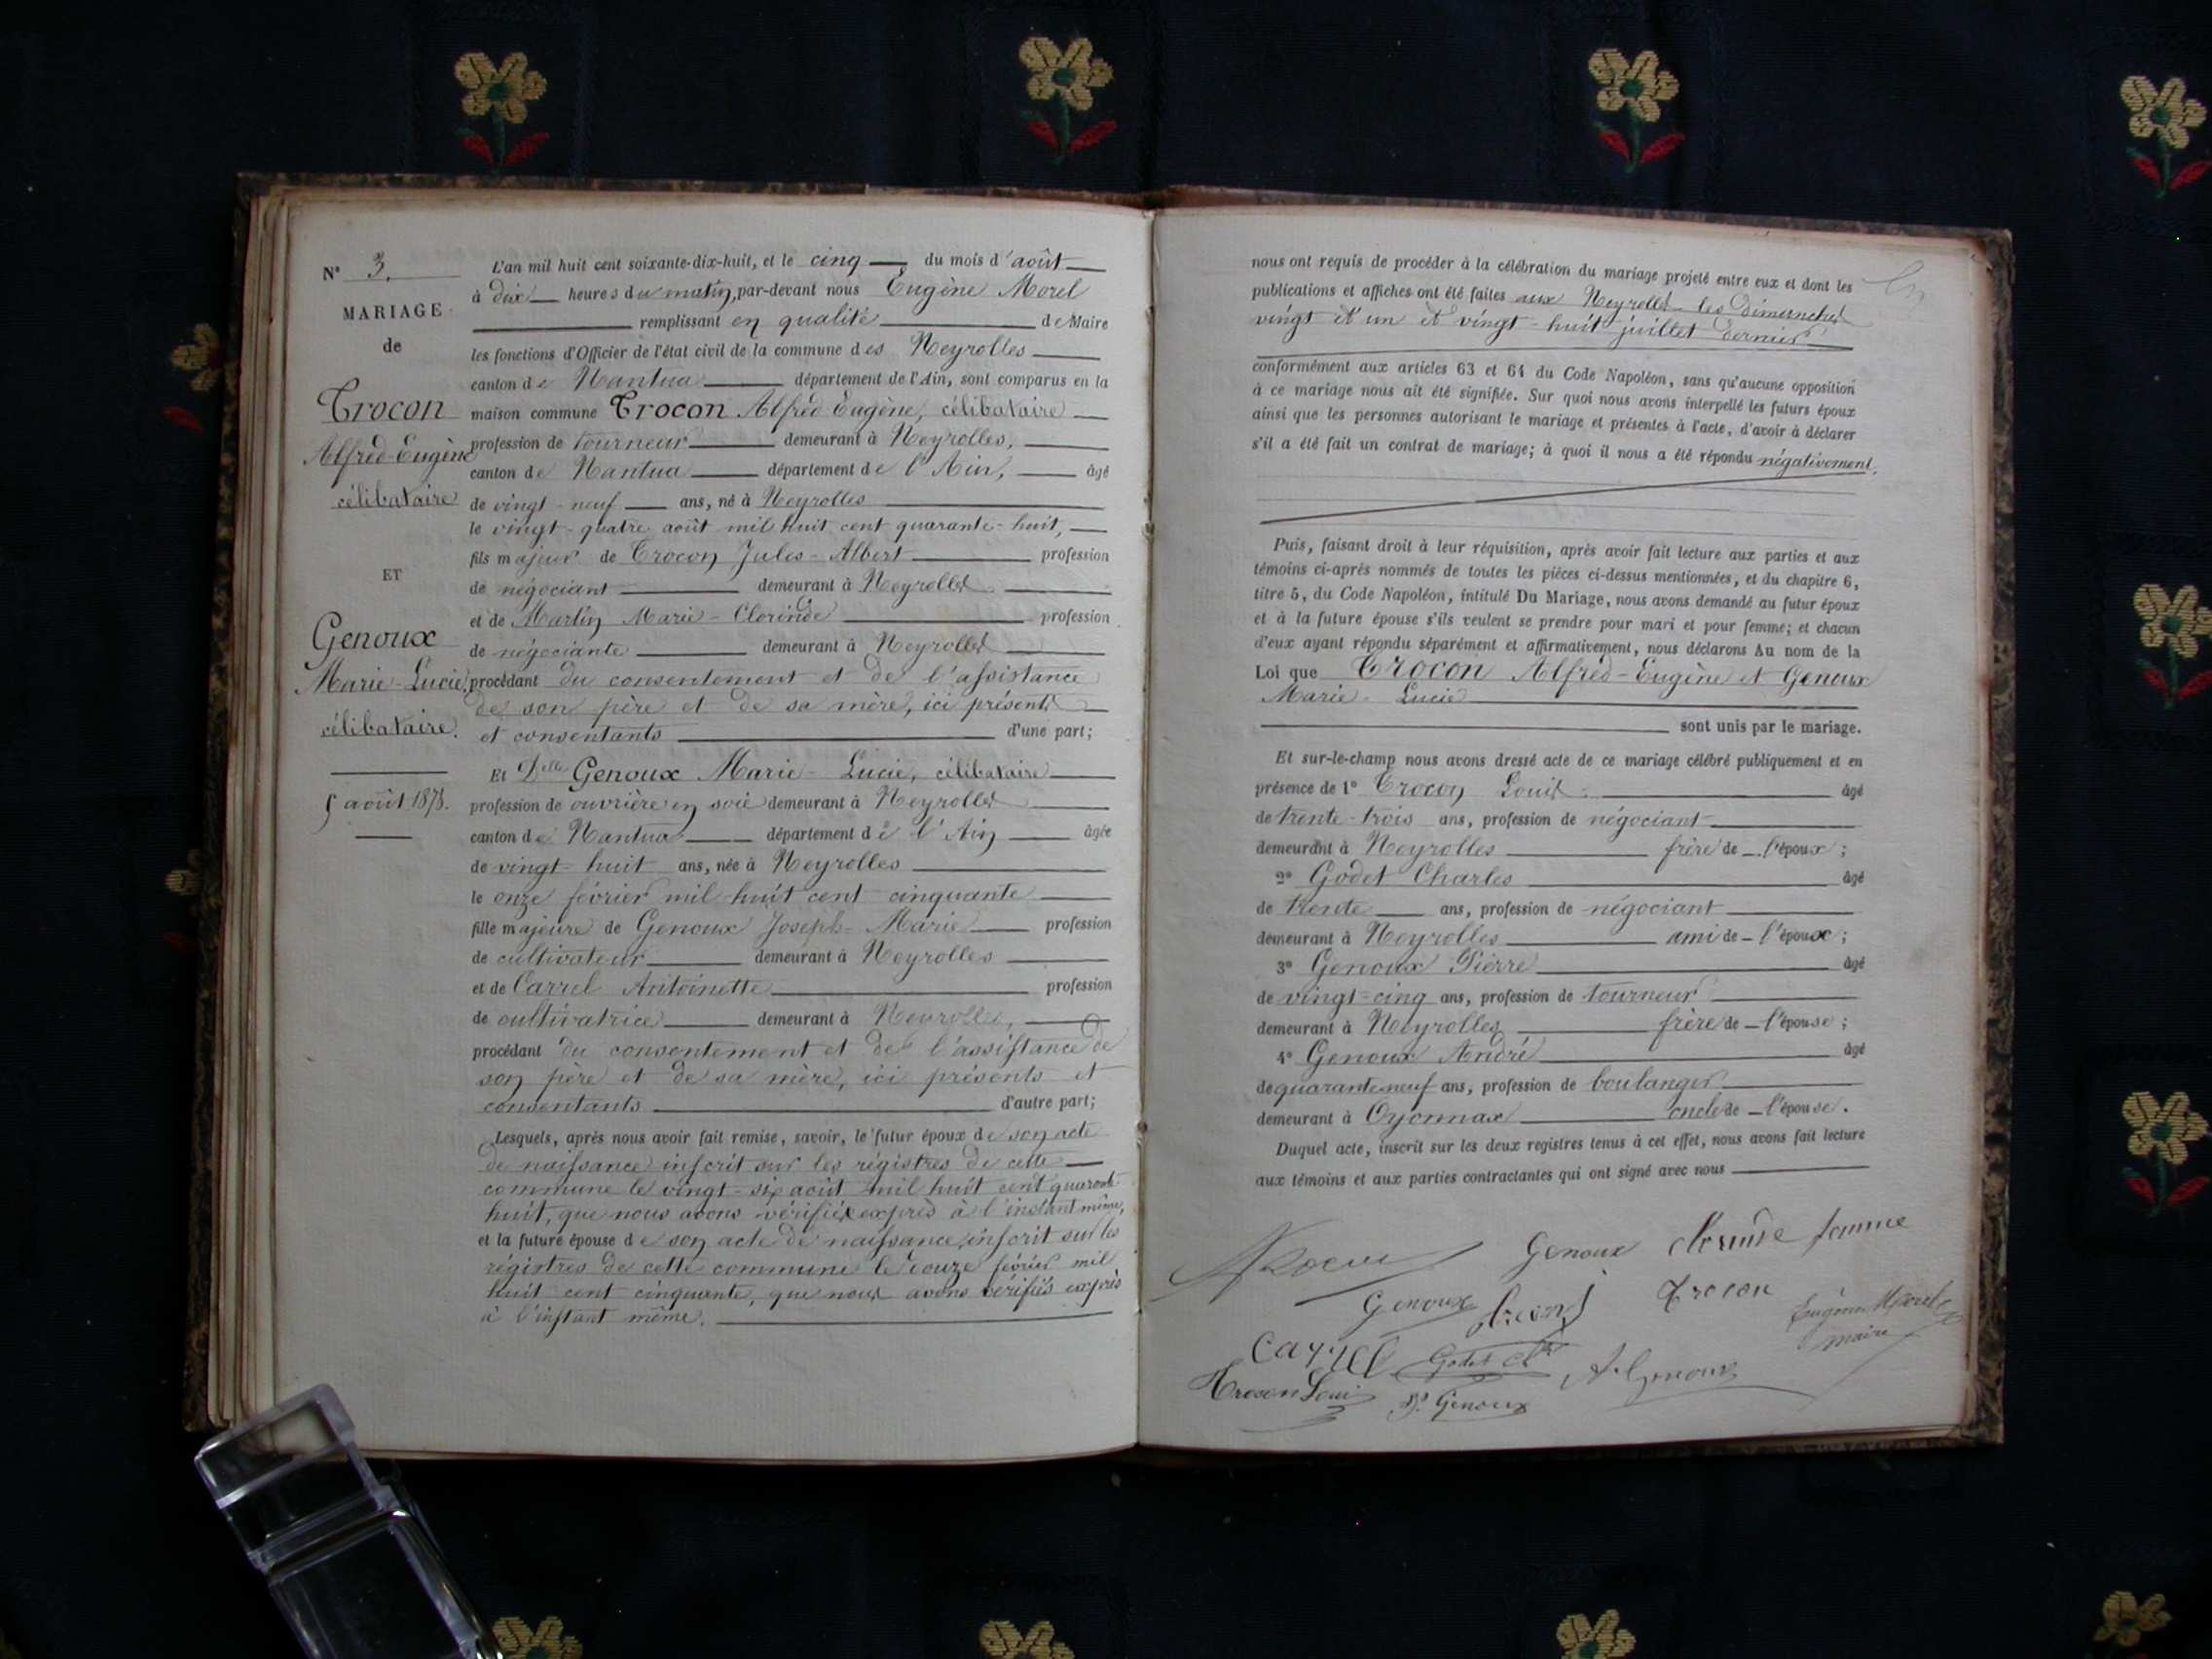 N° 3.
MARIAGE
de
Trocon
Alfred-Eugène
célibataire
ET
Genoux
Marie-Lucie,
célibataire.
5 août 1878.
L'an mil huit cent soixante-dix-huit, et le cinq du mois d'août
à dix heures du matin, par-devant nous Eugène Morel
remplissant en qualité de Maire
les fonctions d'Officier de l'état civil de la commune des Neyrolles
canton de Nantua département de l'Ain, sont comparus en la
maison commune Trocon Alfred Eugène, célibataire
profession de tourneur demeurant à Neyrolles,
canton de Nantua département de l'Ain, âgé
de vingt-neuf ans, né à Neyrolles
le vingt-quatre août mil huit cent quarante-huit,
fils majeur de Trocon Jules-Albert profession
de négociant demeurant à Neyrolles
et de Martin Marie-Clorinde profession
de négociante demeurant à Neyrolles
procédant du consentement et de l'assistance
de son père et de sa mère, ici présents
et consentants d'une part;
Et Delle Genoux Marie-Lucie, célibataire
profession de ouvrière en soie demeurant à Neyrolles
canton de Nantua département de l'Ain âgée
de vingt-huit ans, née à Neyrolles
le onze février mil huit cent cinquante
fille majeure de Genoux Joseph-Marie profession
de cultivateur demeurant à Neyrolles
et de Carrel Antoinette profession
de cultivatrice demeurant à Neyrolles,
procédant du consentement et de l'assistance de
son père et de sa mère, ici présents et
consentants d'autre part;
Lesquels, après nous avoir fait remise, savoir, le futur époux de son acte
de naissance inscrit sur les régistres de cette
commune le vingt-six août mil huit cent quarante
huit, que nous avons vérifiés exprès à l'instant même,
et la future épouse de son acte de naissance, inscrit sur les
régistres de cette commune le douze février mil
huit cent cinquante, que nous avons vérifiés exprès
à l'instant même.
nous ont requis de procéder à la célébration du mariage projeté entre eux et dont les
publications et affiches ont été faites aux Neyrolles les Dimanches
vingt et un et vingt-huit juillet dernier
conformément aux articles 63 et 64 du Code Napoléon, sans qu'aucune opposition
à ce mariage nous ait été signifiée. Sur quoi nous avons interpellé les futurs époux
ainsi que les personnes autorisant le mariage et présentes à l'acte, d'avoir à déclarer
s'il a été fait un contrat de mariage; à quoi il nous a été répondu négativement.
Puis, faisant droit à leur réquisition, après avoir fait lecture aux parties et aux
témoins ci-après nommés de toutes les pièces ci-dessus mentionnées, et du chapitre 6,
titre 5, du Code Napoléon, intitulé Du Mariage, nous avons demandé au futur époux
et à la future épouse s'ils veulent se prendre pour mari et pour femme; et chacun
d'eux ayant répondu séparément et affirmativement, nous déclarons Au nom de la
Loi que Trocon Alfred-Eugène et Genoux
Marie-Lucie
sont unis par le mariage.
Et sur-le-champ nous avons dressé acte de ce mariage célébré publiquement et en
présence de 1° Trocon Louis âgé
de trente-trois ans, profession de négociant
demeurant à Neyrolles frère de l'époux;
2° Godet Charles âgé
de trente ans, profession de négociant
demeurant à Neyrolles ami de l'époux;
3° Genoux Pierre âgé
de vingt-cinq ans, profession de tourneur
demeurant à Neyrolles frère de l'épouse;
4° Genoux André âgé
de quarante-neuf ans, profession de boulanger
demeurant à Oyonnax oncle de l'épouse.
Duquel acte, inscrit sur les deux registres tenus à cet effet, nous avons fait lecture
aux témoins et aux parties contractantes qui ont signé avec nous
Genoux Clorinde femme
Trocon
Genoux
Eugène Morel
maire
Carrel Godet Ch A. Genoux
Trocon Louis P. Genoux